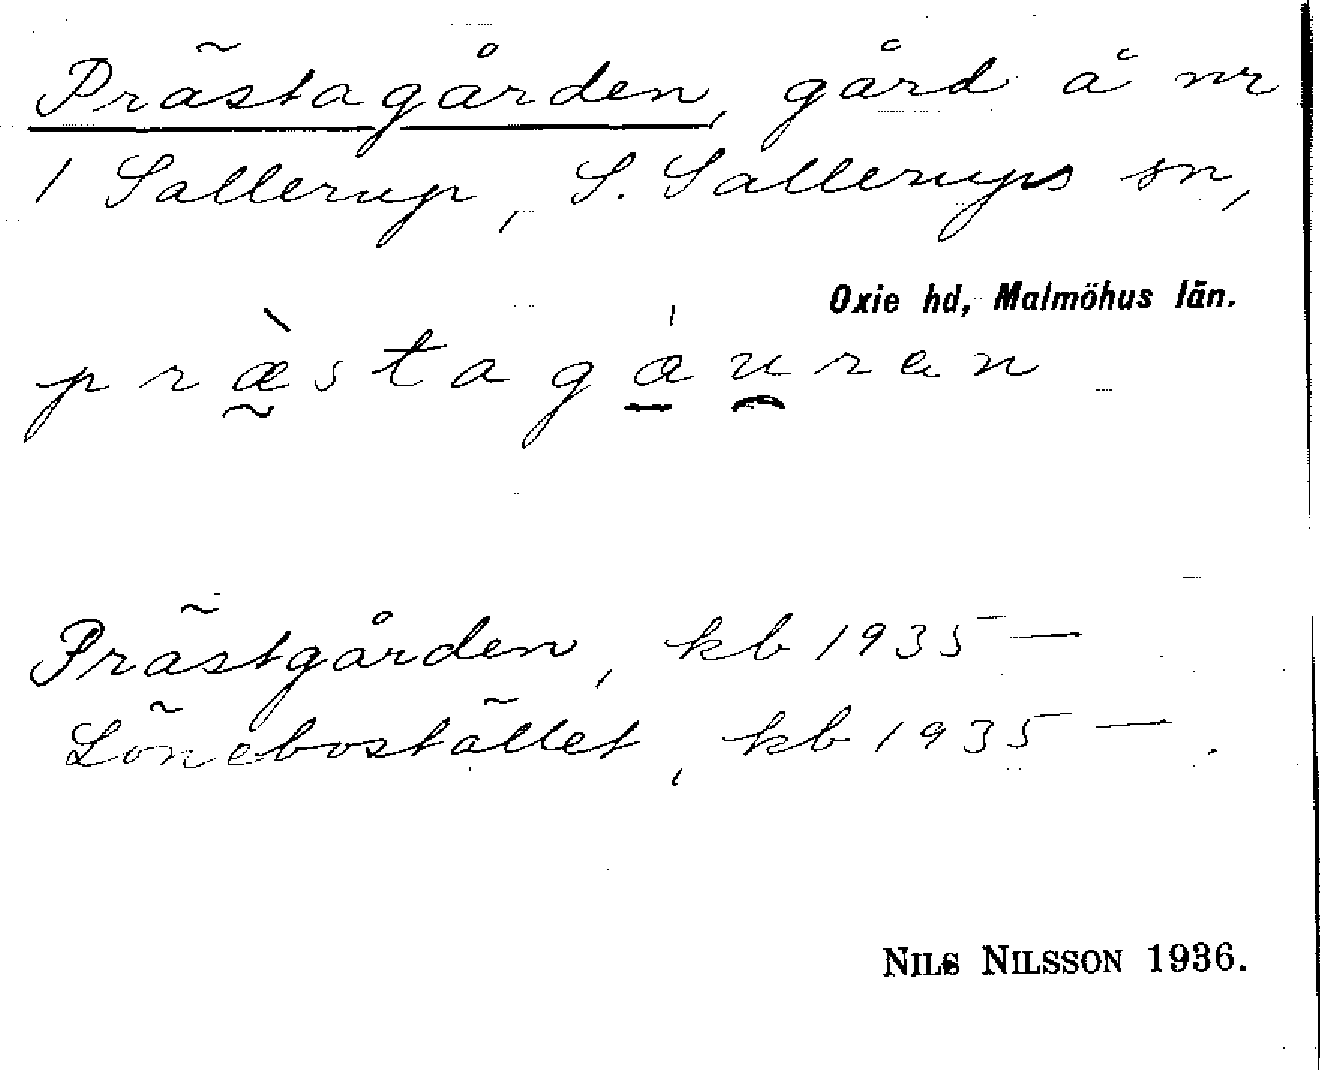 Prästagården, gård å nr
1 Sallerup, S. Sallerups sn,
Oxie hd, Malmöhus län.
præ̀stagáu̯ran
Prästgården, kb 1935 —
Lönebostället, kb 1935 — .
NILS NILSSON 1936.